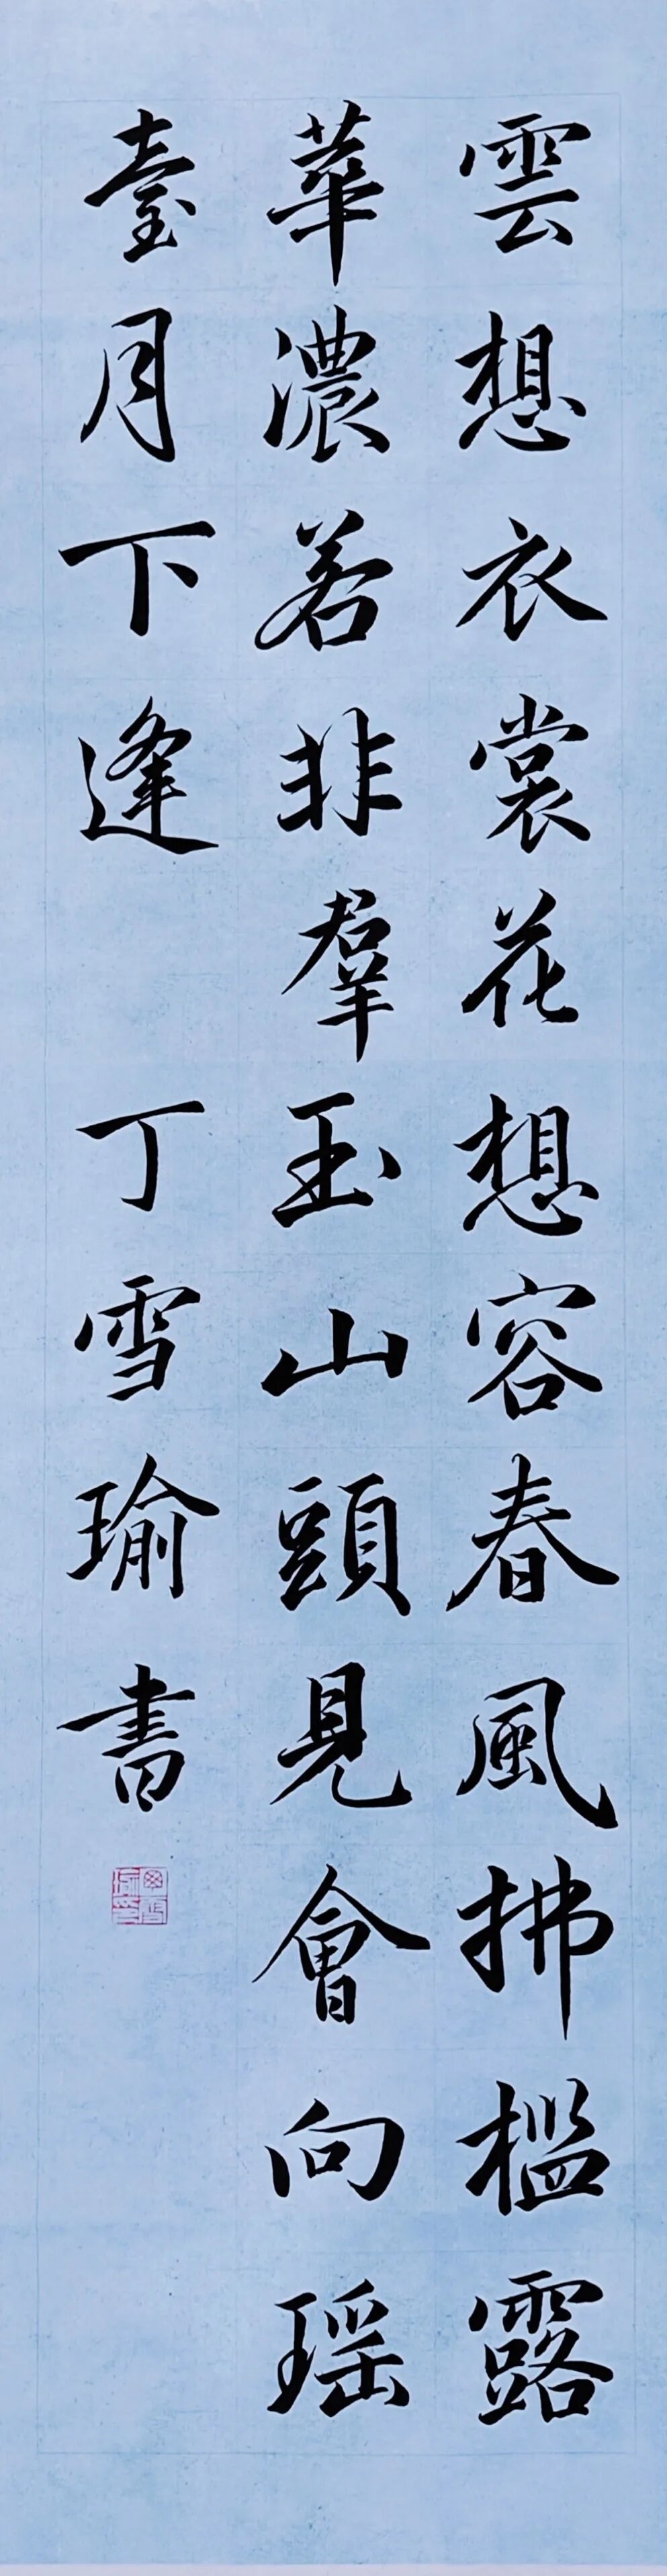 雲想衣裳花想容春風拂檻露
華濃若非羣玉山頭見會向瑶
臺月下逢 丁雪瑜書